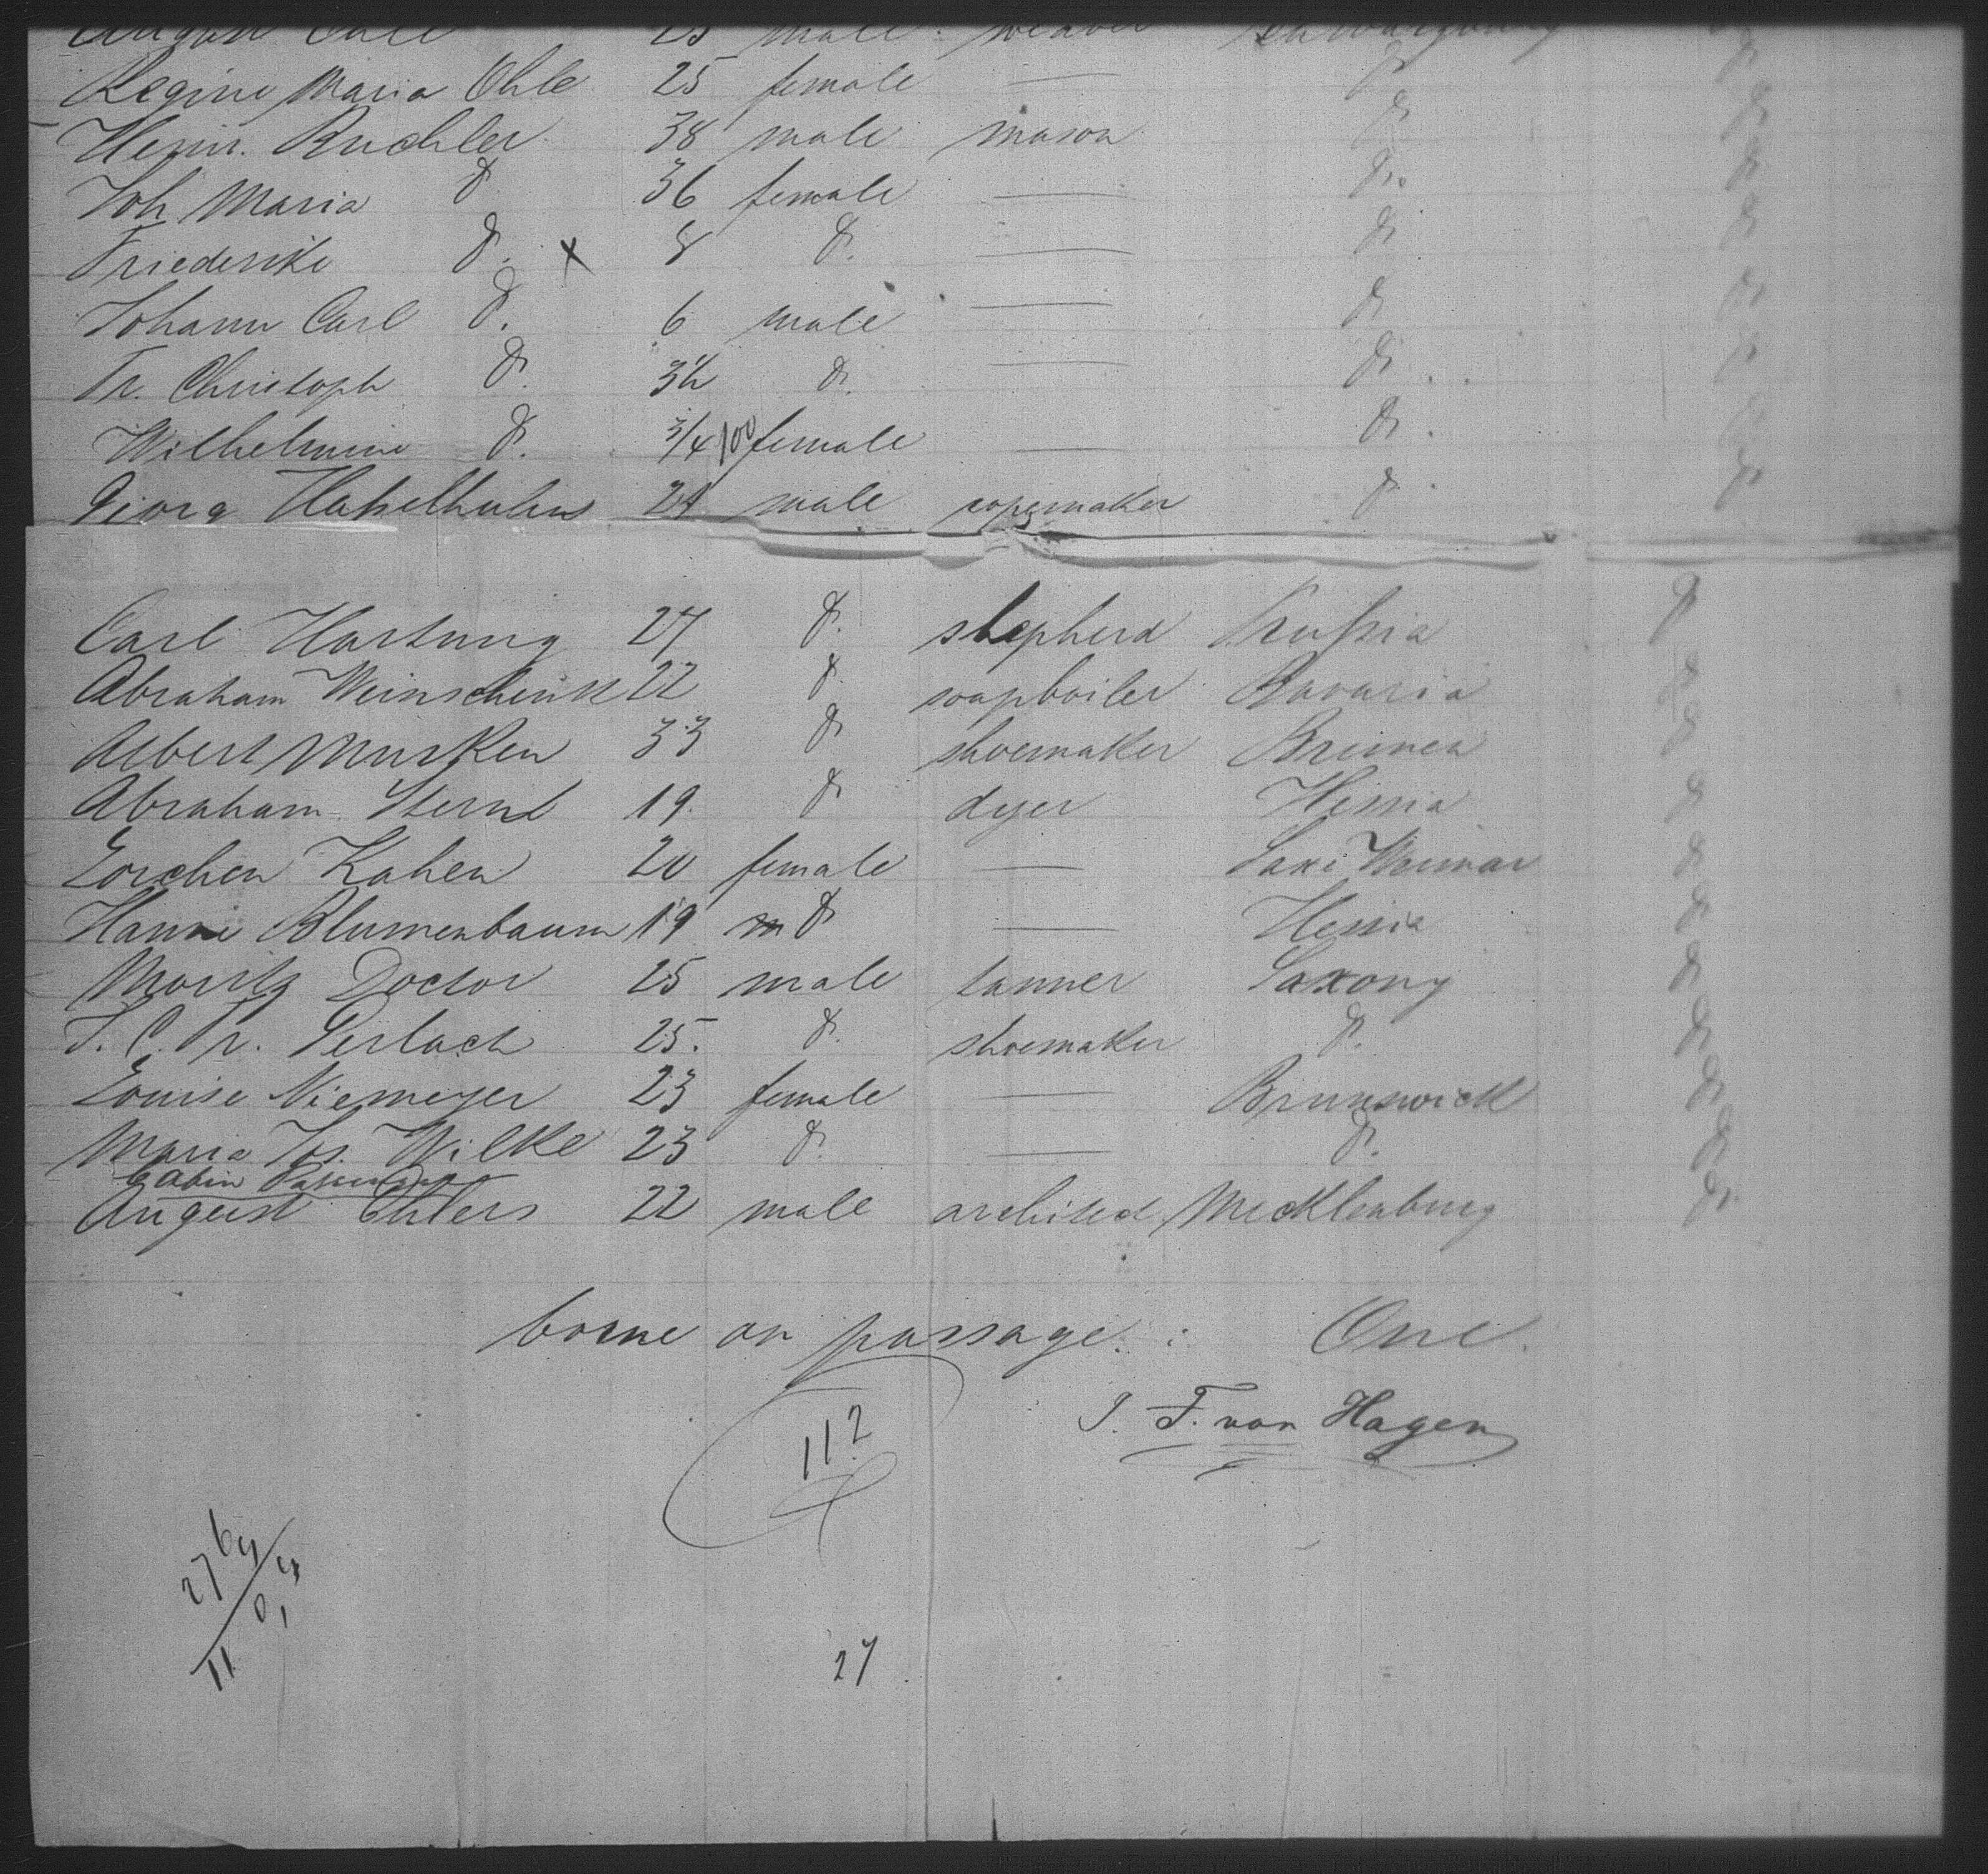 25 male weaver
Regine Maria Ohle 25 female — do do
Heinr. Buchler 38 male mason do do
Joh Maria do 36 female — do do
Friederike do. x 8 do. — do do
Johann Carl do. 6 male — do do
Fr. Christoph do. 3½ do. — do do
Wilhelmine do. 3/4 100 female — do. do
Georg 24 male ropemaker do do
Carl Hartung 27 do. shepherd Prussia do
Abraham Weinschenk 22 do. soapboiler Bavaria do
Albert Murken 33 do shoemaker Bremen do
Abraham Stern 19. do dyer Hessia do
Lorchen Kahen 20 female — Saxe Weimar do
Hanne Blumenbaum 19 m do — Hessia do
Moritz Doctor 25 male tanner Saxony do
J. C. Fr. Gerlach 25. do. shoemaker do. do
Louise Niemeyer 23 female — Brunswick do
Maria Jos. Wilke 23 do. — do. do
Cabin Passenger
August Ehlers 22 male architect Mecklenburg do
borne on passage: One.
112
J. F. von Hagen
27